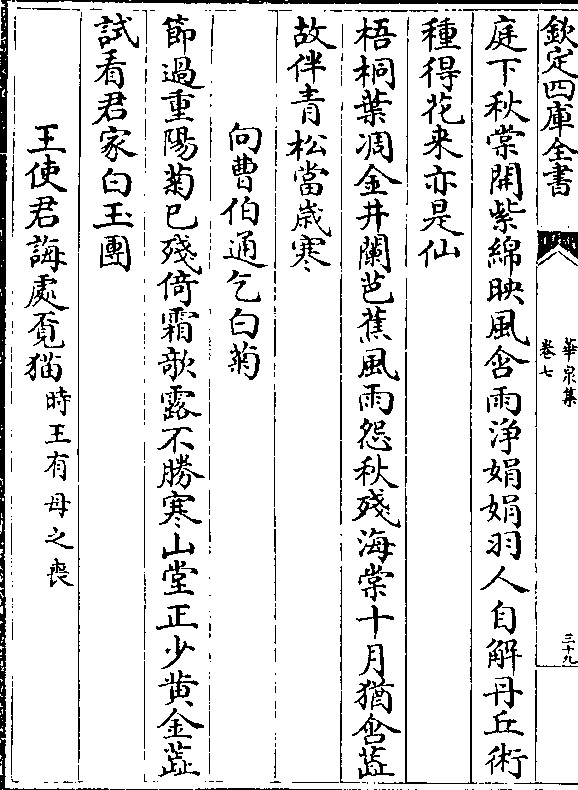 欽定四庫全書
華泉集
卷七
三十九
庭下秋棠開紫綿映風含雨浄娟娟羽人自解丹丘術
種得花来亦是仙
梧桐葉凋金井闌芭蕉風雨怨秋殘海棠十月猶含蕋
故伴青松當歳寒
向曹伯通乞白菊
節過重陽菊已殘倚霜欹露不勝寒山堂正少黄金蕋
試看君家白玉團
王使君誨處覔猫時王有母之喪